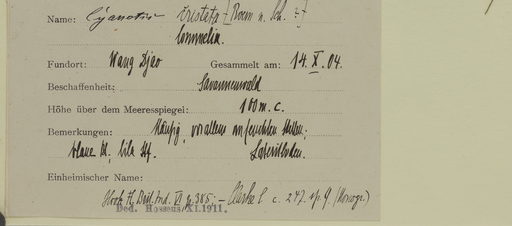 Name: Cyanotis cristata [Roem u. Sch. ?]
Commelia.
Fundort: Wang Djao Gesammelt am: 14. X. 04.
Beschaffenheit: Savannenwald
Höhe über dem Meeresspiegel: 100 m. c.
Bemerkungen: Häufig, vor allem an feuchten Stellen;
blaue Bl., lila Stf. Lateritboden.
Einheimischer Name:
Hook. Fl. Brit. Ind. VI p. 385; – Clarke l. c. 247. sp. 9. (Monogr.)
Ded. Hosseus XI.1911.